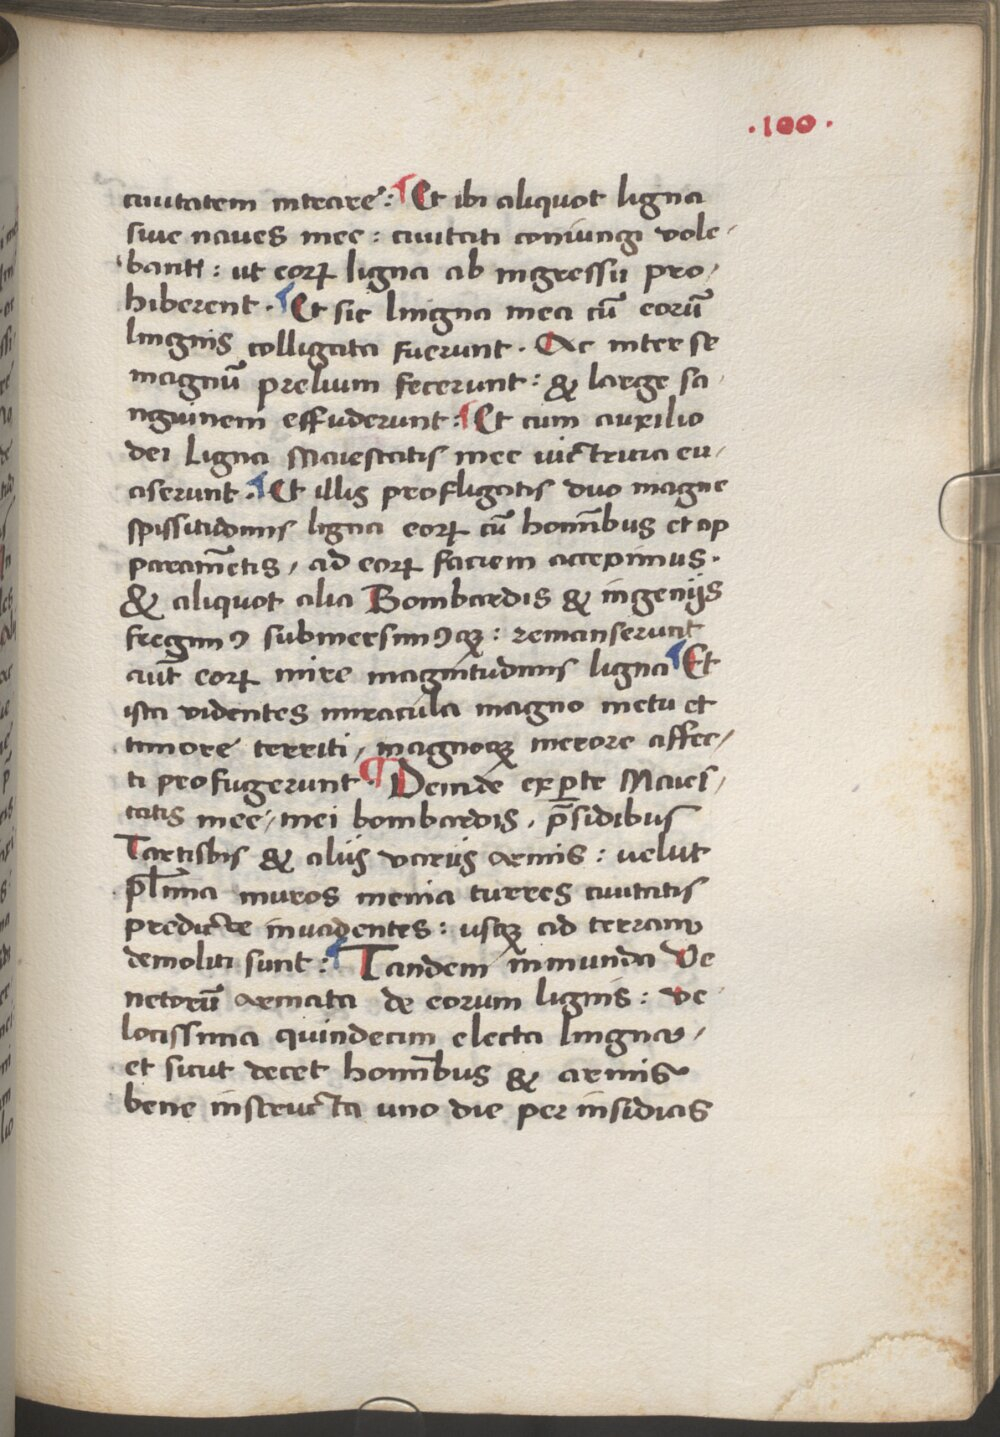 ·100·
ciuitatem intrare: ¶ Et ibi aliquot ligna
siue naues mee: ciuitati coniungi vole-
bant: ut eorꝝ ligna ab ingressu pro-
hiberent. ¶ Et sic lingna mea cū eorū
lingnis colligata fuerunt. Ac inter se
magnū prelium fecerunt: & large sa-
nguinem effuderunt: ¶ Et cum auxilio
dei Ligna Maiestatis mee victricia eu-
aserunt. ¶ Et illis profligatis duo magne
spissitudinis ligna eorꝝ cū homībus et ap
paramētis, ad eorꝝ faciem accepimus.
& aliquot alia Bombardis & ingenijs
fregimꝰ submersimꝰqꝫ: remanserunt
aūt eorꝝ mire magnitudinis ligna ¶ Et
ista videntes miracula magno metu et
timore territi, magnoqꝫ merore affec-
ti profugerunt. ¶ Deinde ex ꝑte Maies-
tatis mee, mei bombardis, p̄sidibus
Tartisbis & alijs varijs armis: velut
pl̄ima muros menia turres ciuitatis
predicte inuadentes: usqꝫ ad terram
demoliti sunt: ¶ Tandem inmunda Ve
netorū armata de eorum lignis: ve-
locissima quindecim electa lingna,
et sicut decet homībus & armis
bene instructa uno die per insidias